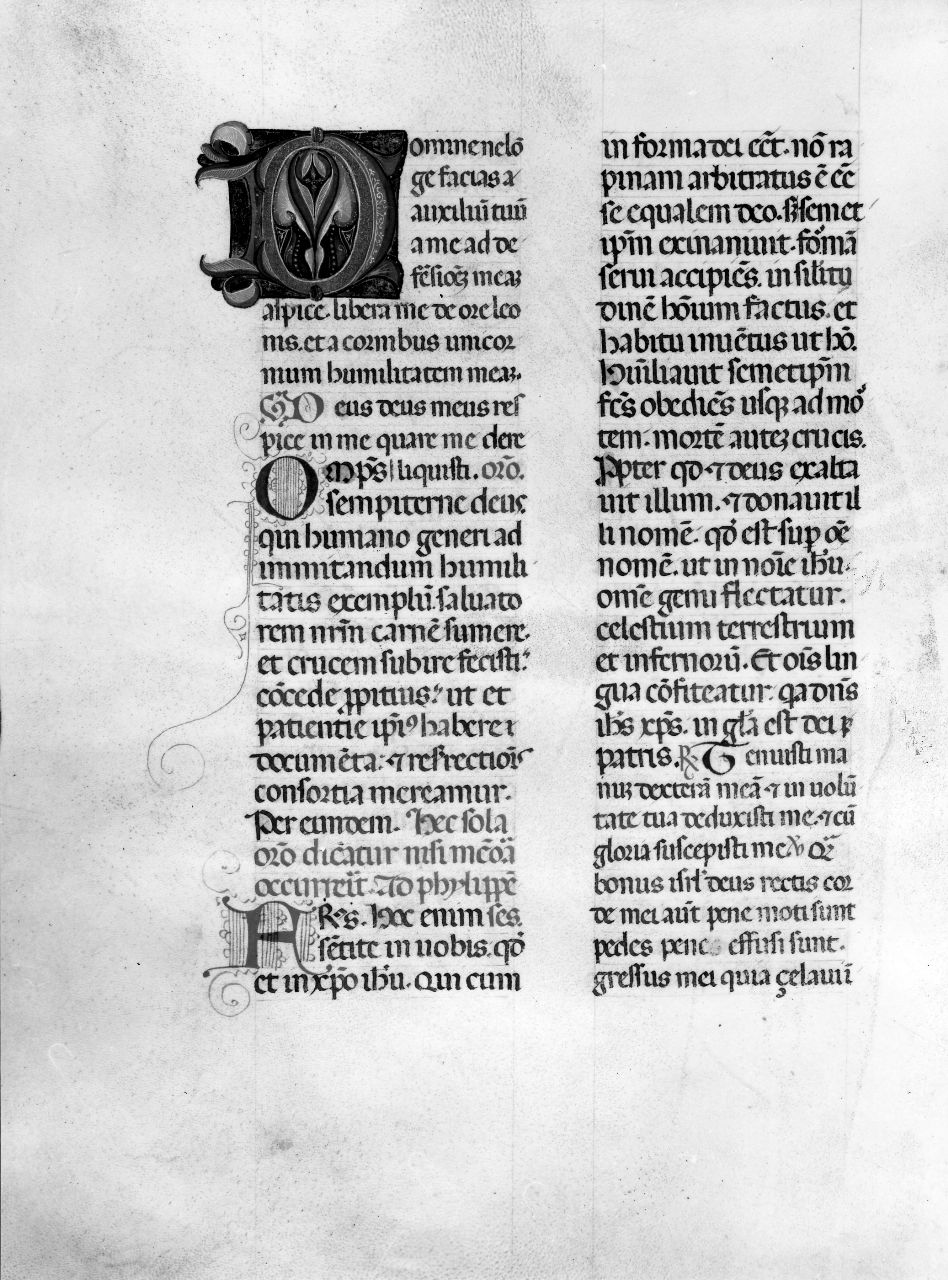 Domine ne lō
ge facias a
auxiliū tuū
a me ad de
fēsioꝫ meaꝫ
aspice. libera me de ore leo
nis. et a cornibus unicor
nium humilitatem meaꝫ.
D eus deus meus res
pice in me quare me dere
OMPS̄ liquisti. orō.
sempiterne deus
qui humano generi ad
imitandum humili
tatis exemplū. saluato
rem nr̄m carnē sumere.
et crucem subire fecisti:
cōcede ꝓpitius: ut et
patientie ip̄iꝰ habere
documēta: ⁊ resrectiōis
consortia mereamur.
Per eundem. Hec sola
orō dicatur nisi mēoā
occurrerit. Ad phylippē
FRS̄. Hoc enim sēs
sētite in uobis. qđ
et in xp̄o ihū. Qui cum
in forma dei eēt. nō ra
pinam arbitratus ē eē
se equalem deo. sꝫ semet
ip̄m exinaniuit. formā
serui accipiēs. in silitu
dinē hōium factus. et
habitu inuētus ut hō.
Humiliauit semetip̄m
fcs̄ obediēs usqꝫ ad mor
tem. mortē auteꝫ crucis.
Ꝓpter qđ ⁊ deus exalta
uit illum. ⁊ donauit il
li nomē. qđ est suꝑ oē
nomē. ut in noīe ihū.
omē genu flectatur.
celestium terrestrium
et infernorū. Et oīs lin
gua cōfiteatur. qa dn̄s
ih̄s xp̄s. in glā est dei
patris. ℟ Tenuisti ma
nuꝫ dexterā meā ⁊ in uolū
tate tua deduxisti me. ⁊ cū
gloria suscepisti me ℣ Qꝫ
bonus isrł deus rectis cor
de mei aūt pene moti sunt
pedes pene effusi sunt.
gressus mei quia çelauui